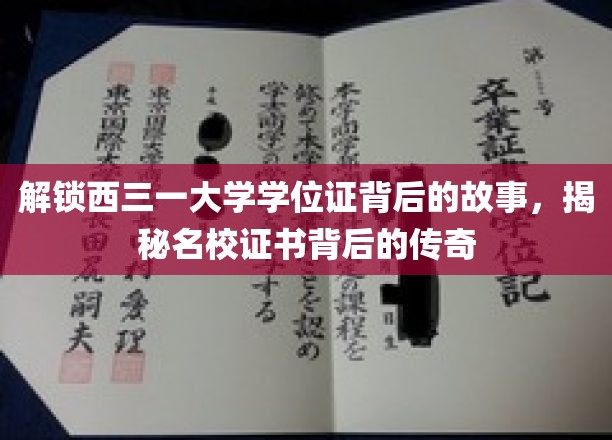 解锁西三一大学学位证背后的故事，揭
秘名校证书背后的传奇
第 号
卒業証 学位記
本学商学部 定の課程を
日生
修めて本学 ことを認め
学士(商学)の する
平成
東京国際大学商 村愛理
東京国際大学 長田尻嗣夫